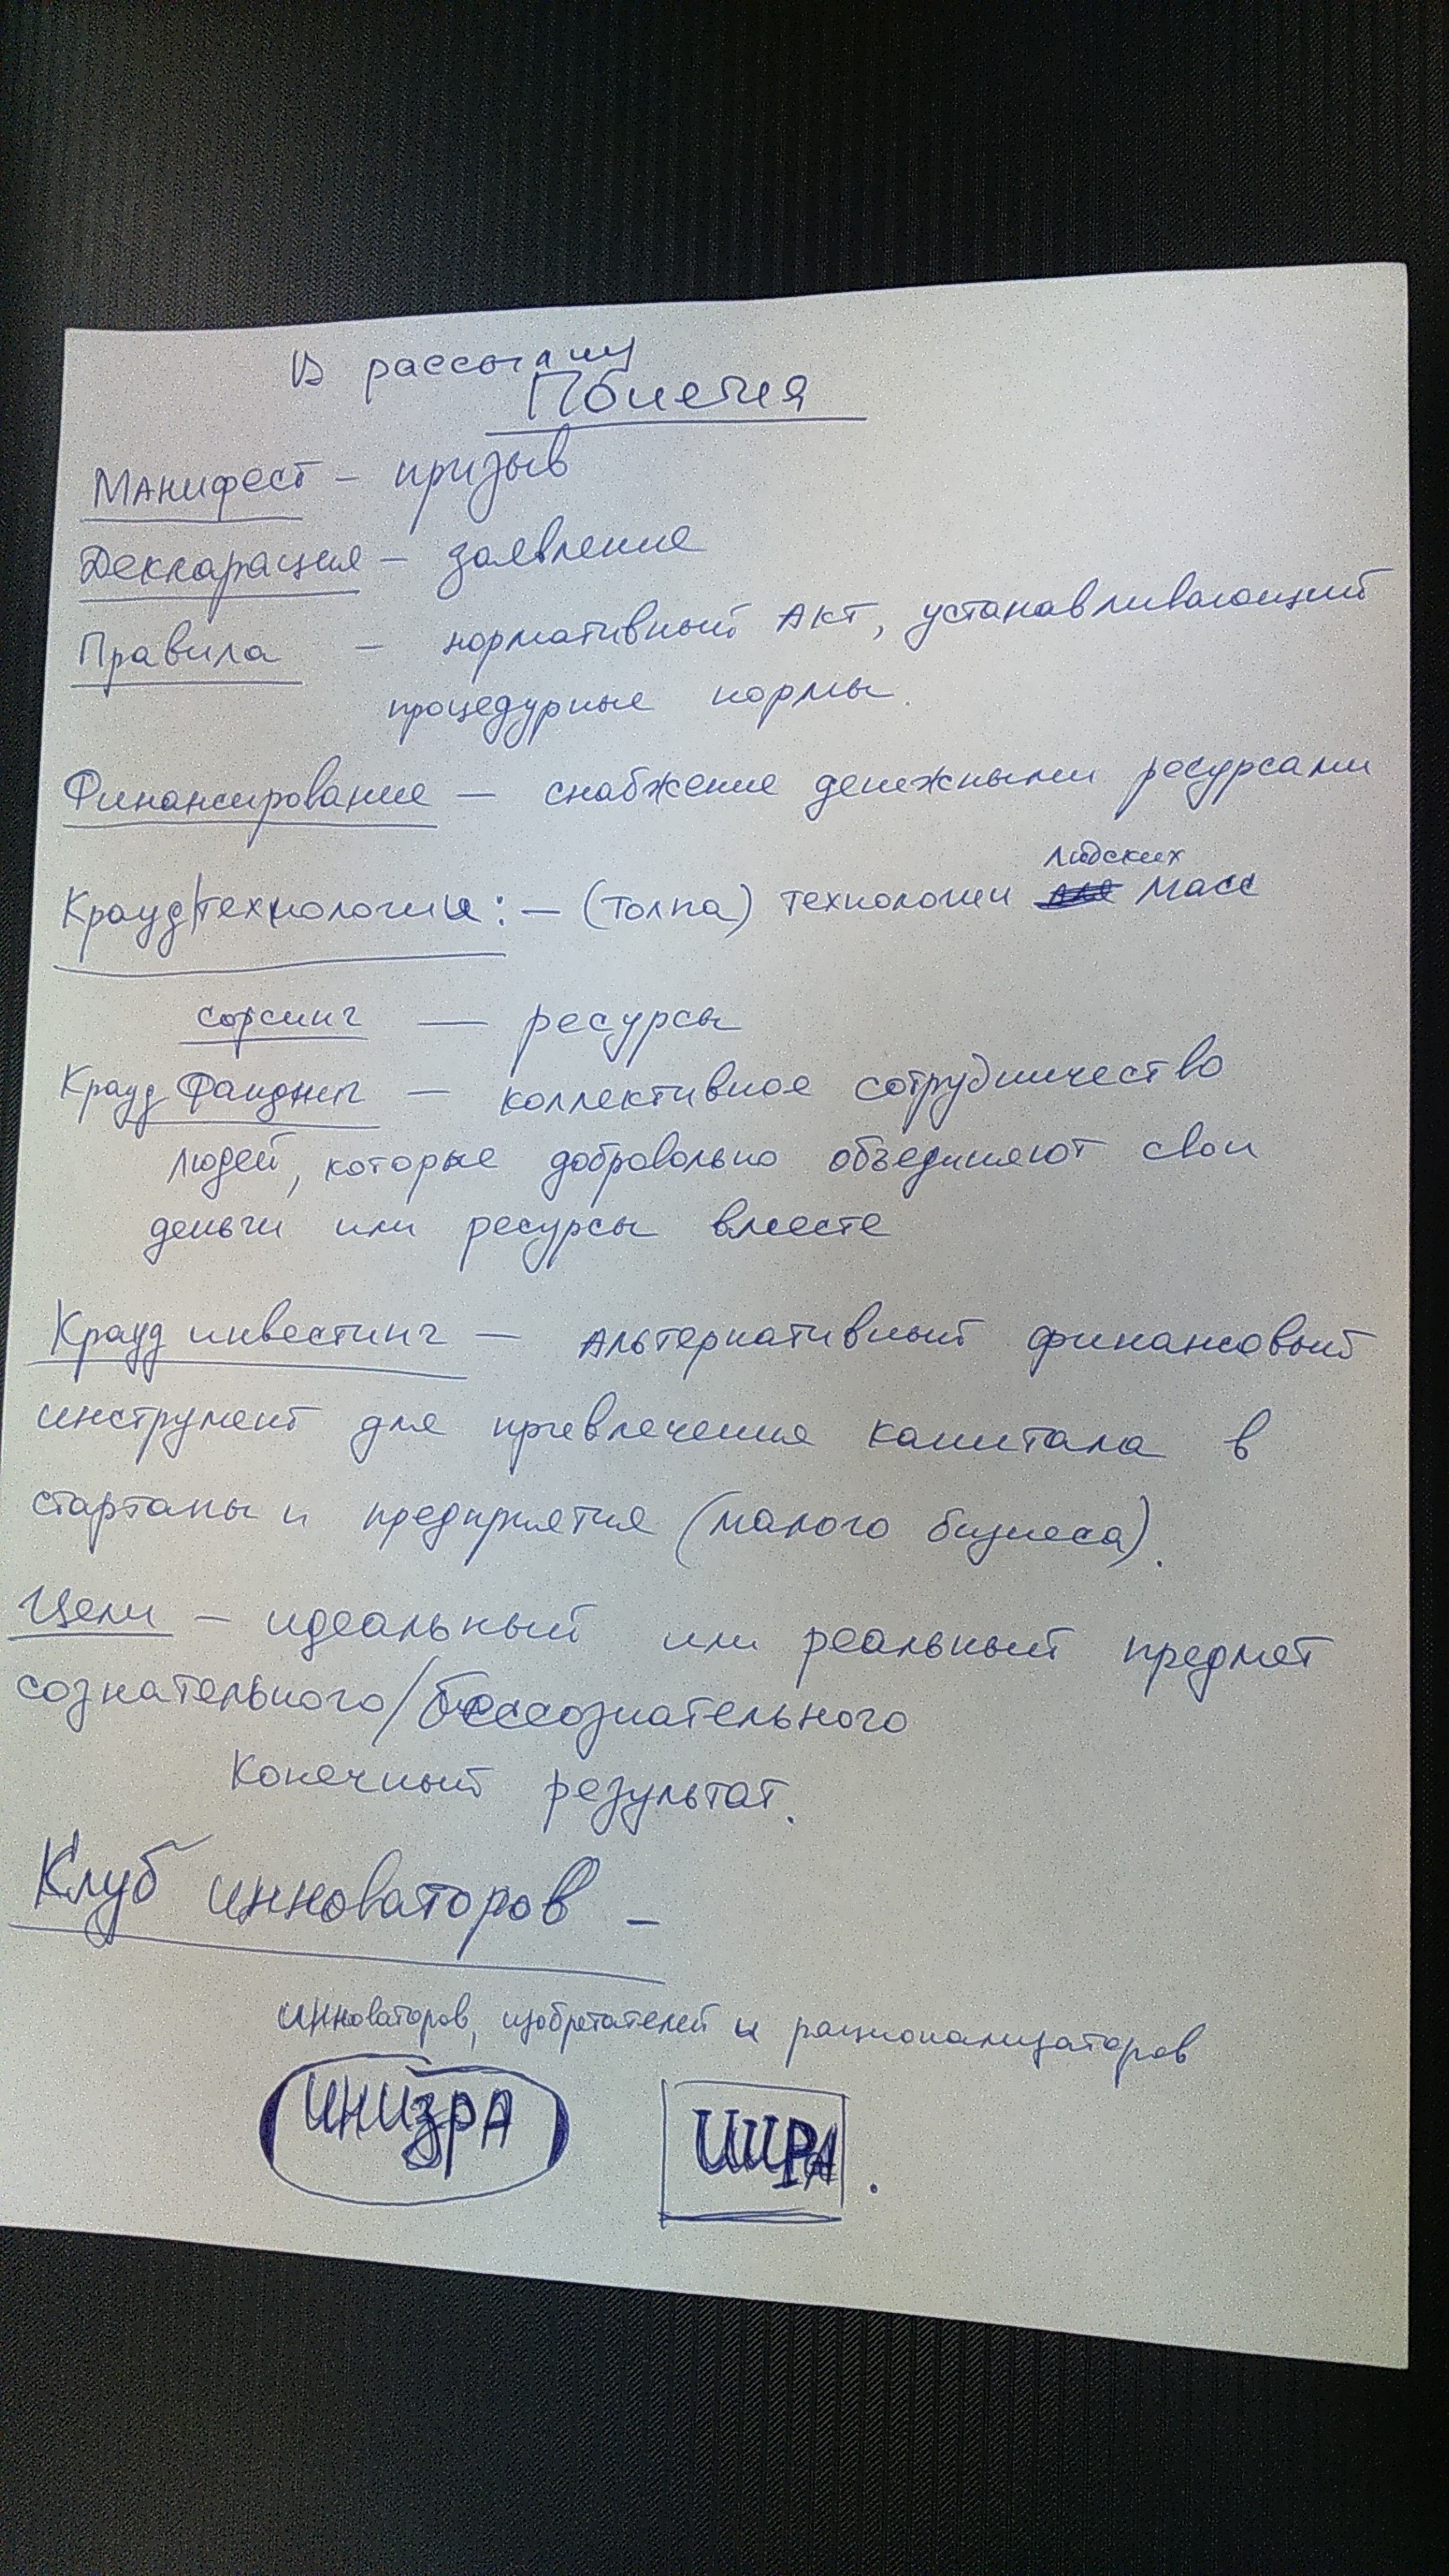 В рассылку
Понятия
Манифест – призыв
Декларация – заявление
Правила – нормативный Акт, устанавливающий
процедурные нормы.
Финансирование – снабжение денежными ресурсами
людских
Крауд|технологии: – (толпа) технологии масс
сорсинг — ресурсы
Крауд Фандинг – коллективное сотрудничество
людей, которые добровольно объединяют свои
деньги или ресурсы вместе
Крауд инвестинг – Альтернативный финансовый
инструмент для привлечения капитала в
стартапы и предприятия (малого бизнеса).
Цели – идеальный или реальный предмет
сознательного/бессознательного
Конечный результат.
Клуб инноваторов –
инноваторов, изобретателей и рационализаторов
ИНИЗРА ИИРА.